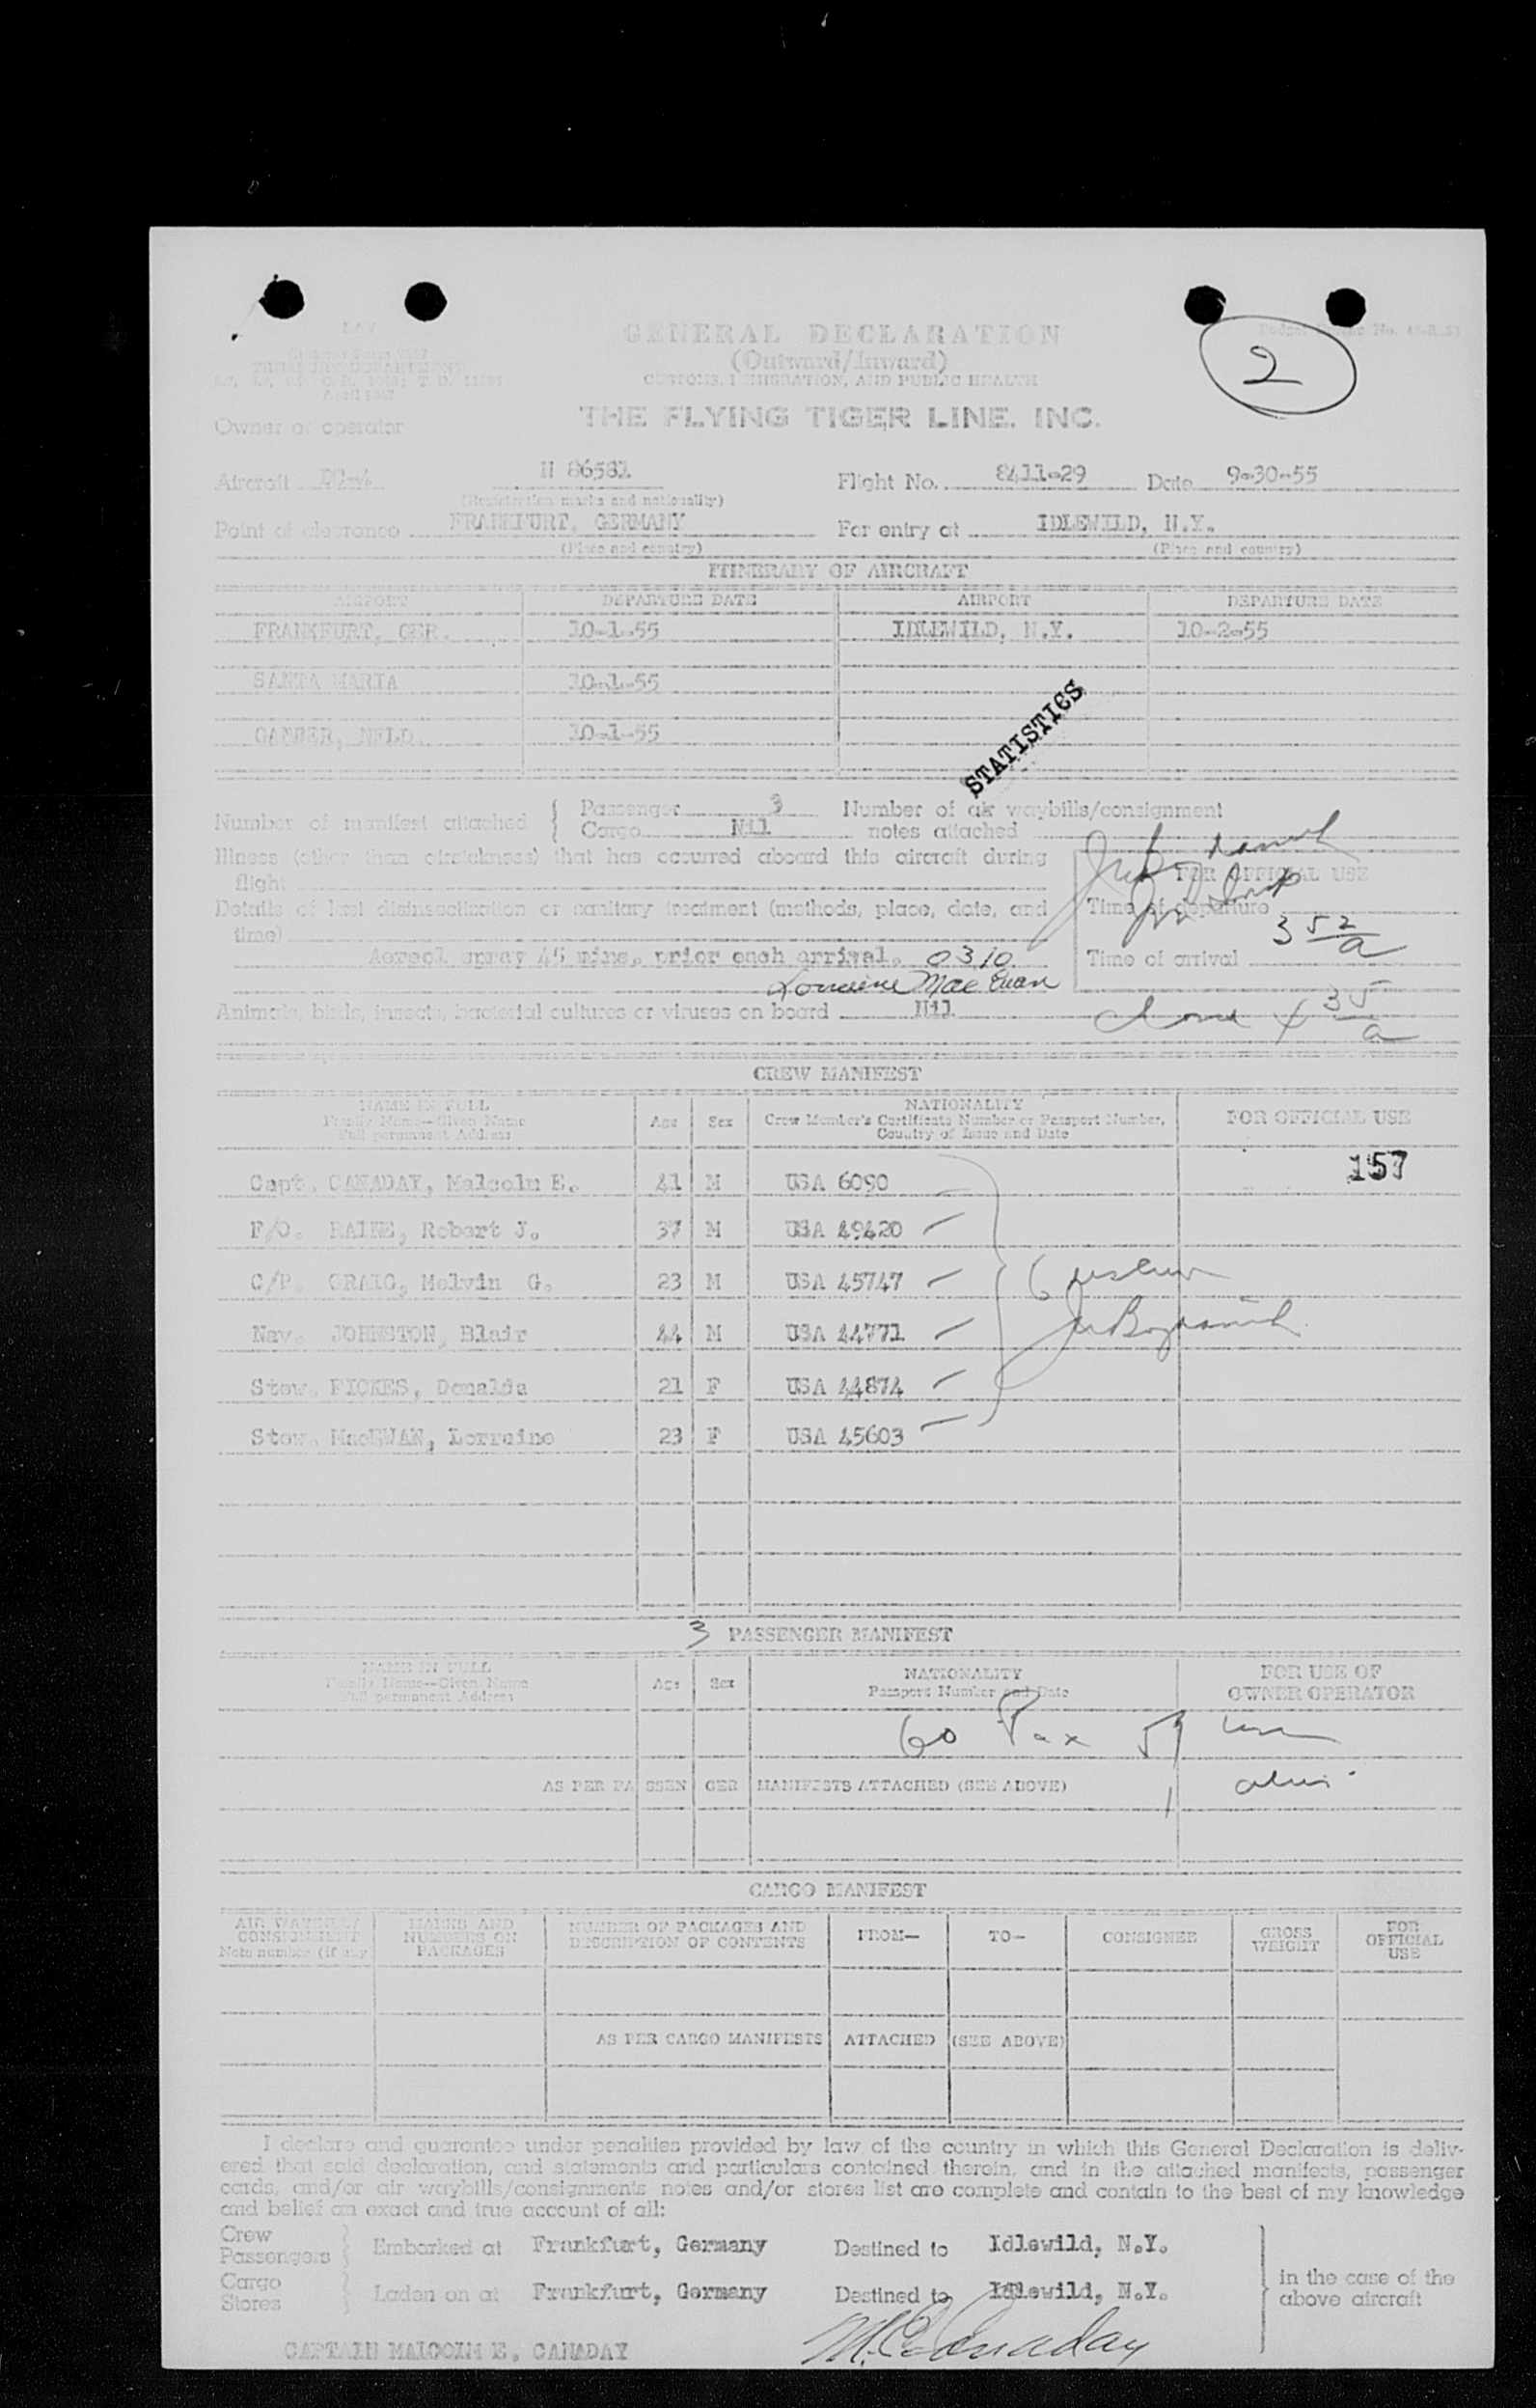 GENERAL DECLARATION
(Outward/Inward)
CUSTOMS, IMMIGRATION, AND PUBLIC HEALTH
2
THE FLYING TIGER LINE. INC.
Owner or operator
Aircraft N 86581 Flight No. 8411-29 Date 9-30-55
(Registration marks and nationality)
Point of clearance FRANKFURT, GERMANY For entry at IDLEWILD, N.Y.
(Place and country) (Place and country)
ITINERARY OF AIRCRAFT
AIRPORT DEPARTURE DATE AIRPORT DEPARTURE DATE
FRANKFURT, GER. 10-1-55 IDLEWILD, N.Y. 10-2-55
SANTA MARIA 10-1-55
GANDER, NFLD. 10-1-55
STATISTICS
Number of manifest attached { Passenger 3 Number of air waybills/consignment
Cargo Nil notes attached
Illness (other than airsickness) that has occurred aboard this aircraft during
flight
FOR OFFICIAL USE
Details of last disinsectization or sanitary treatment (methods, place, date, and
time)
Time of departure
Aerosol spray 45 mins. prior each arrival. 0310
Time of arrival 3 52/a
Lorraine Mac Ewan
Animals, birds, insects, bacterial cultures or viruses on board Nil
4 35/a
CREW MANIFEST
NAME IN FULL Age Sex NATIONALITY FOR OFFICIAL USE
Family Name—Given Name Crew Member's Certificate Number or Passport Number,
Full permanent Address Country of Issue and Date
157
Capt. CANADAY, Malcolm E. 41 M USA 6090
F/O. RAINE, Robert J. 37 M USA 49420
C/P. CRAIG, Melvin G. 23 M USA 45747
Nav. JOHNSTON, Blair 44 M USA 44771
Stew. FICKES, Donalda 21 F USA 44874
Stew. MacEWAN, Lorraine 23 F USA 45603
3 PASSENGER MANIFEST
NAME IN FULL Age Sex NATIONALITY FOR USE OF
Family Name—Given Name Passport Number and Date OWNER OPERATOR
Full permanent Address
60 Pax
AS PER PASSENGER MANIFESTS ATTACHED (SEE ABOVE)
1 alien
CARGO MANIFEST
AIR WAYBILL/ CONSIGNMENT Note number (if any) MARKS AND NUMBERS ON PACKAGES NUMBER OF PACKAGES AND DESCRIPTION OF CONTENTS FROM— TO— CONSIGNEE GROSS WEIGHT FOR OFFICIAL USE
AS PER CARGO MANIFESTS ATTACHED (SEE ABOVE)
I declare and guarantee under penalties provided by law of the country in which this General Declaration is deliv-
ered that said declaration, and statements and particulars contained therein, and in the attached manifests, passenger
cards, and/or air waybills/consignments notes and/or stores list are complete and contain to the best of my knowledge
and belief an exact and true account of all:
Crew
Passengers } Embarked at Frankfurt, Germany Destined to Idlewild, N.Y.
Cargo
Stores } Laden on at Frankfurt, Germany Destined to Idlewild, N.Y.
in the case of the
above aircraft
CAPTAIN MALCOLM E. CANADAY M.E. Canaday